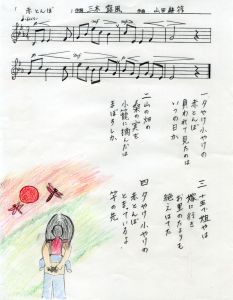 赤とんぼ 作詞 三木 露風 作曲 山田耕筰
一 夕やけ小やけの
赤とんぼ
負われて見たのは
いつの日か
二 山の畑の
桑の実を
小籠に摘んだは
まぼろしか
三 十五で姐やは
嫁に行き
お里のたよりも
絶えはてた
四 夕やけ小やけの
赤とんぼ
とまっているよ
竿の先